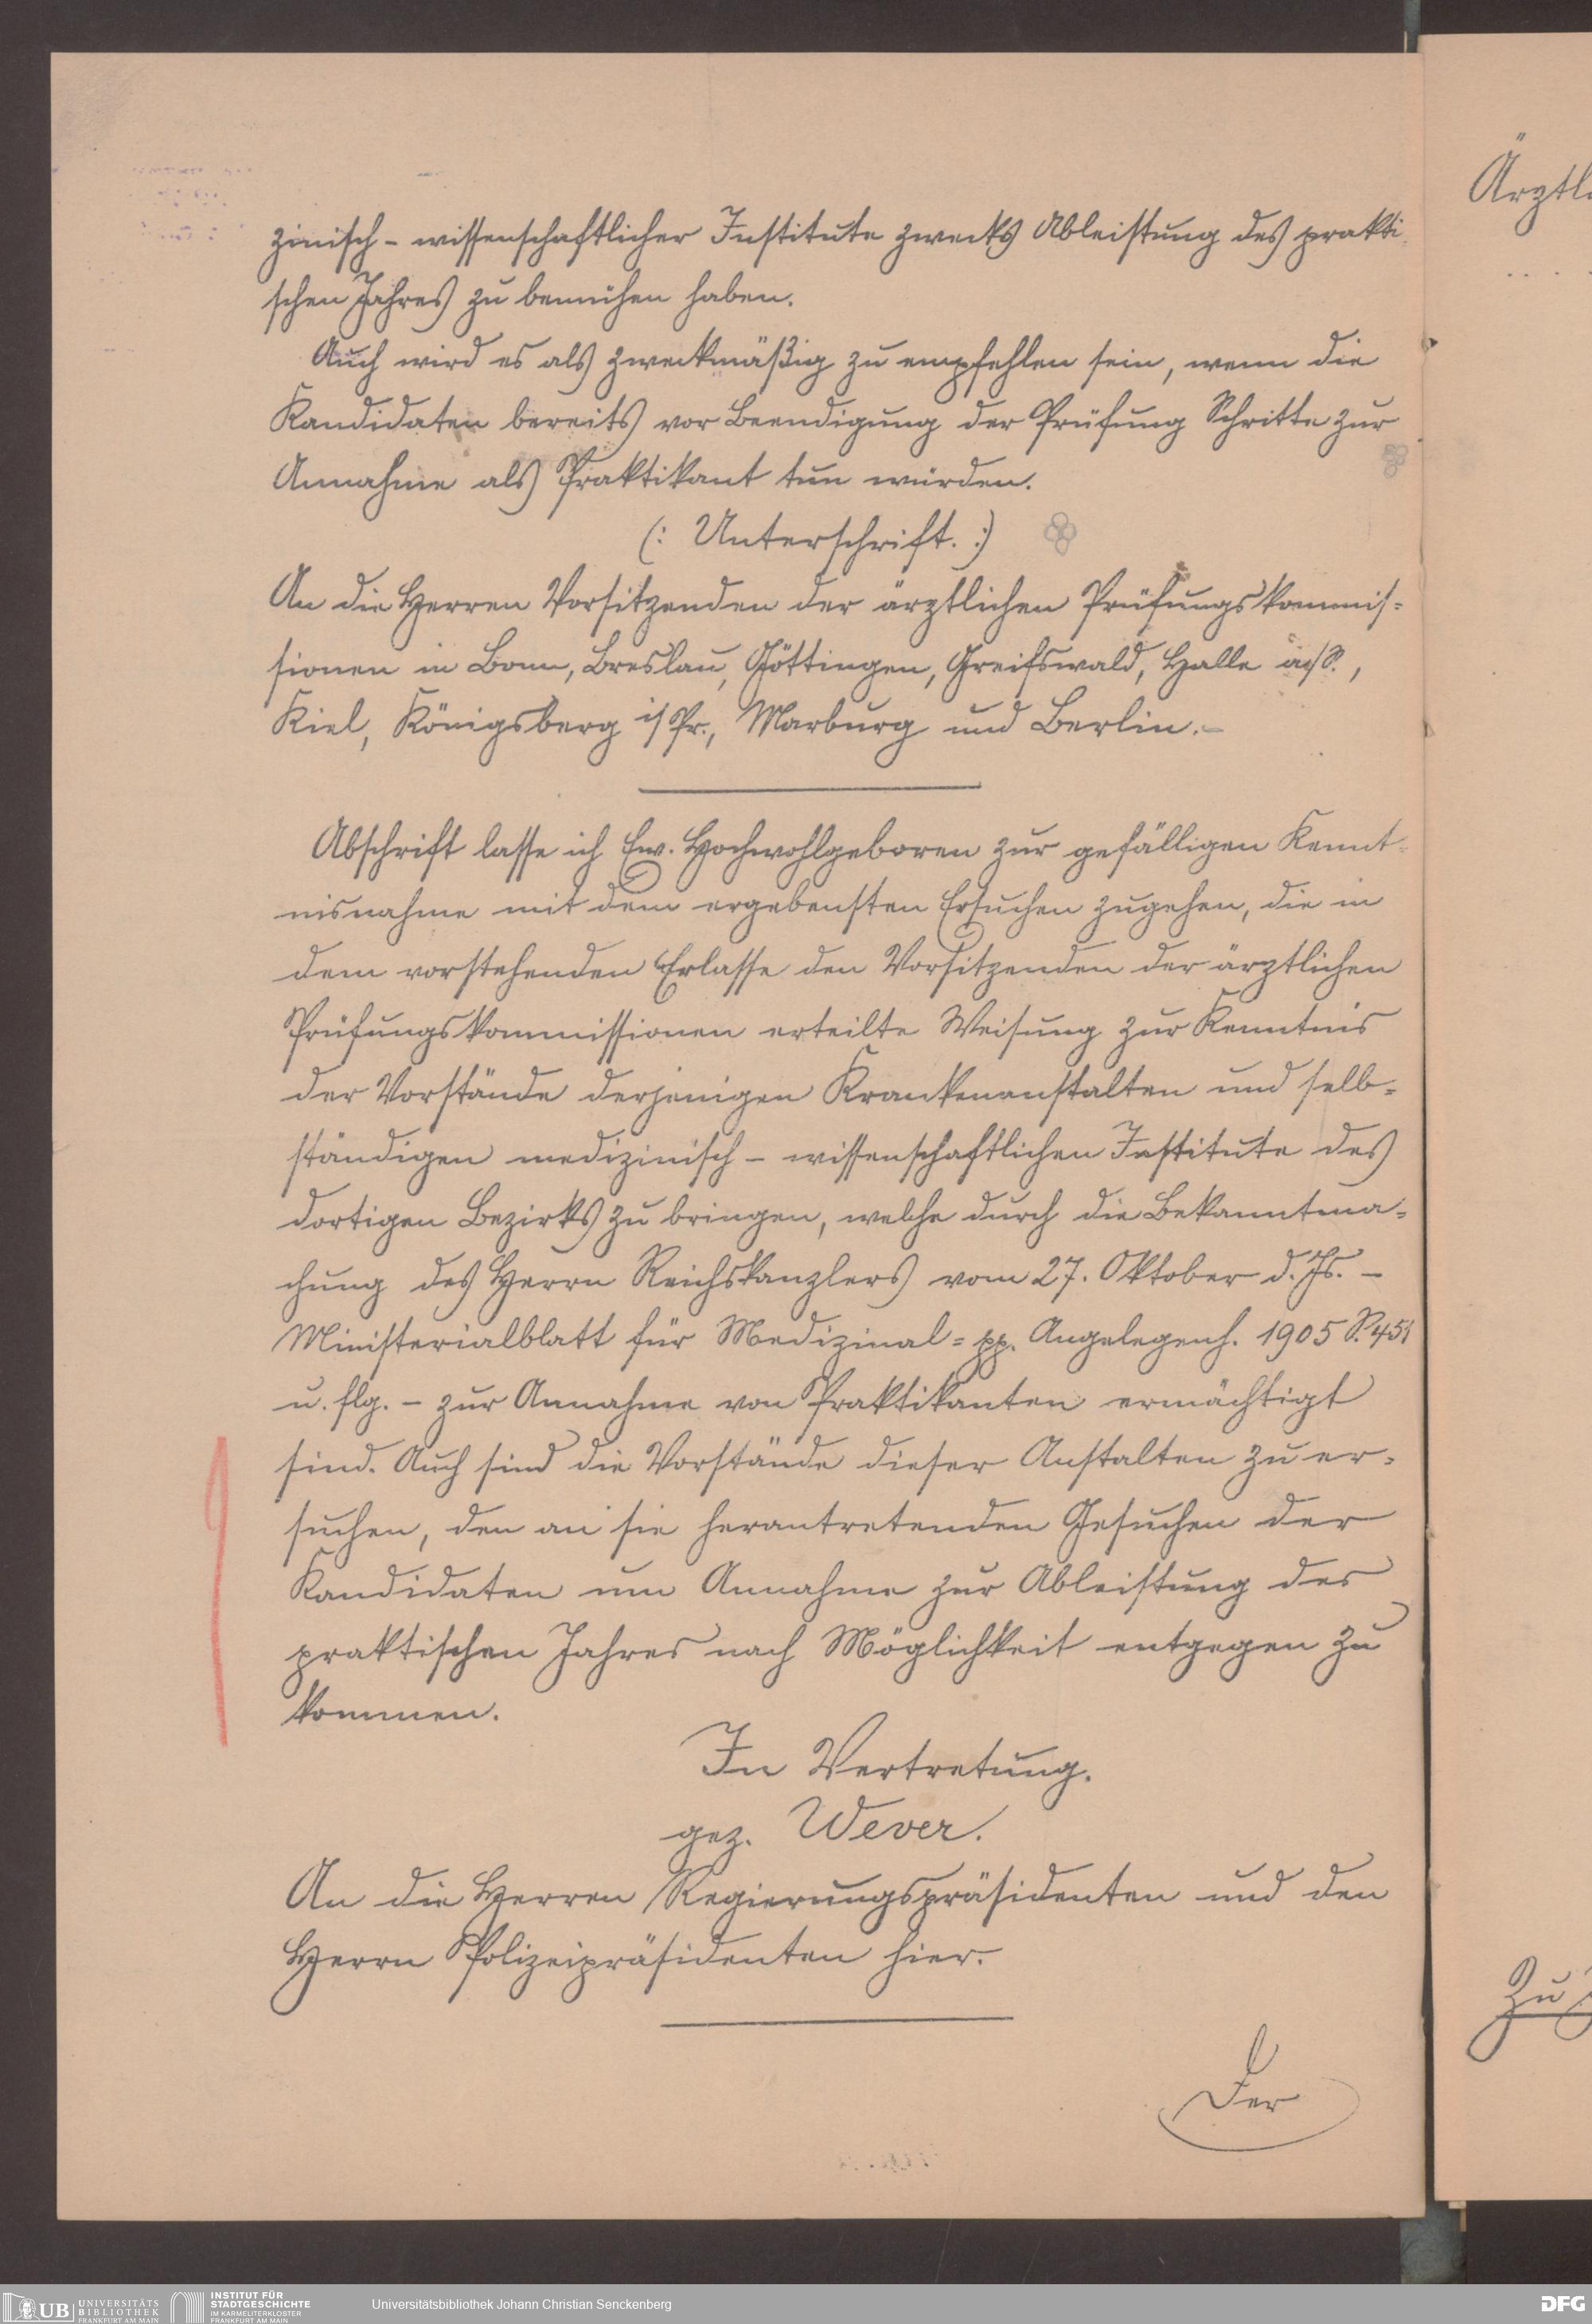 zinisch - wissenschaftlicher Institute zwecks Ableistung des prakti
schen Jahres zu bemühen haben.
Auch wird es als zweckmäßig zu empfehlen sein, wenn die
Kandidaten bereits vor Beendigung der Prüfung Schritte zur
Annahme als Praktikant tun würden.
(: Unterschrift. :)
An die Herren Vorsitzenden der ärztlichen Prüfungskommis=
sionen in Bonn, Breslau, Göttingen, Greifswald, Halle a/S.,
Kiel, Königsberg i/Pr., Marburg und Berlin.-
Abschrift lasse ich Ew. Hochwohlgeboren zur gefälligen Kennt=
nisnahme mit dem ergebensten Ersuchen zugehen, die in
dem vorstehenden Erlasse den Vorsitzenden der ärztlichen
Prüfungskommissionen erteilte Weisung zur Kenntnis
der Vorstände derjenigen Krankenanstalten und selb=
ständigen medizinisch - wissenschaftlichen Institute des
dortigen Bezirks zu bringen, welche durch die Bekanntma=
chung des Herrn Reichskanzlers vom 27. Oktober d. Js. -
Ministerialblatt für Medizinal= pp. Angelegenh. 1905 S. 451
u. flg. - zur Annahme von Praktikanten ermächtigt
sind. Auch sind die Vorstände dieser Anstalten zu er=
suchen, den an sie herantretenden Gesuchen der
Kandidaten um Annahme zur Ableistung des
praktischen Jahres nach Möglichkeit entgegen zu
kommen.
In Vertretung.
gez. Wever.
An die Herren Regierungspräsidenten und den
Herrn Polizeipräsidenten hier.
Der
Ärztl
Zu
UB UNIVERSITÄTS
BIBLIOTHEK
FRANKFURT AM MAIN
INSTITUT FÜR
STADTGESCHICHTE
IM KARMELITERKLOSTER
FRANKFURT AM MAIN
Universitätsbibliothek Johann Christian Senckenberg
DFG